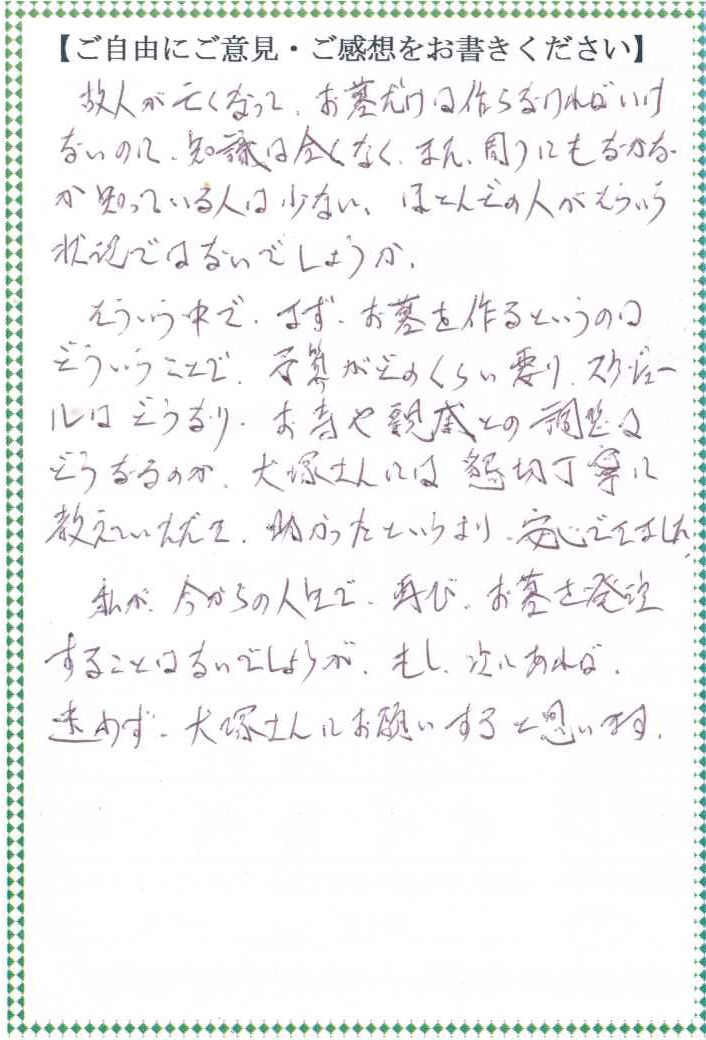 【ご自由にご意見・ご感想をお書きください】
故人が亡くなって、お墓だけは作らなければいけ
ないのに、知識は全くなく、また、周りにもなかな
か知っている人は少ない、ほとんどの人がそういう
状況ではないでしょうか。
そういう中で、まず、お墓を作るというのは
どういうことで、予算がどのくらい要り、スケジュー
ルはどうなり、お寺や親族との調整は
どうなるのか、犬塚さんには懇切丁寧に
教えていただき、助かったというより、安心できました。
私が、今からの人生で、再び、お墓を発注
することはないでしょうが、もし、次にあれば、
迷わず、犬塚さんにお願いすると思います。